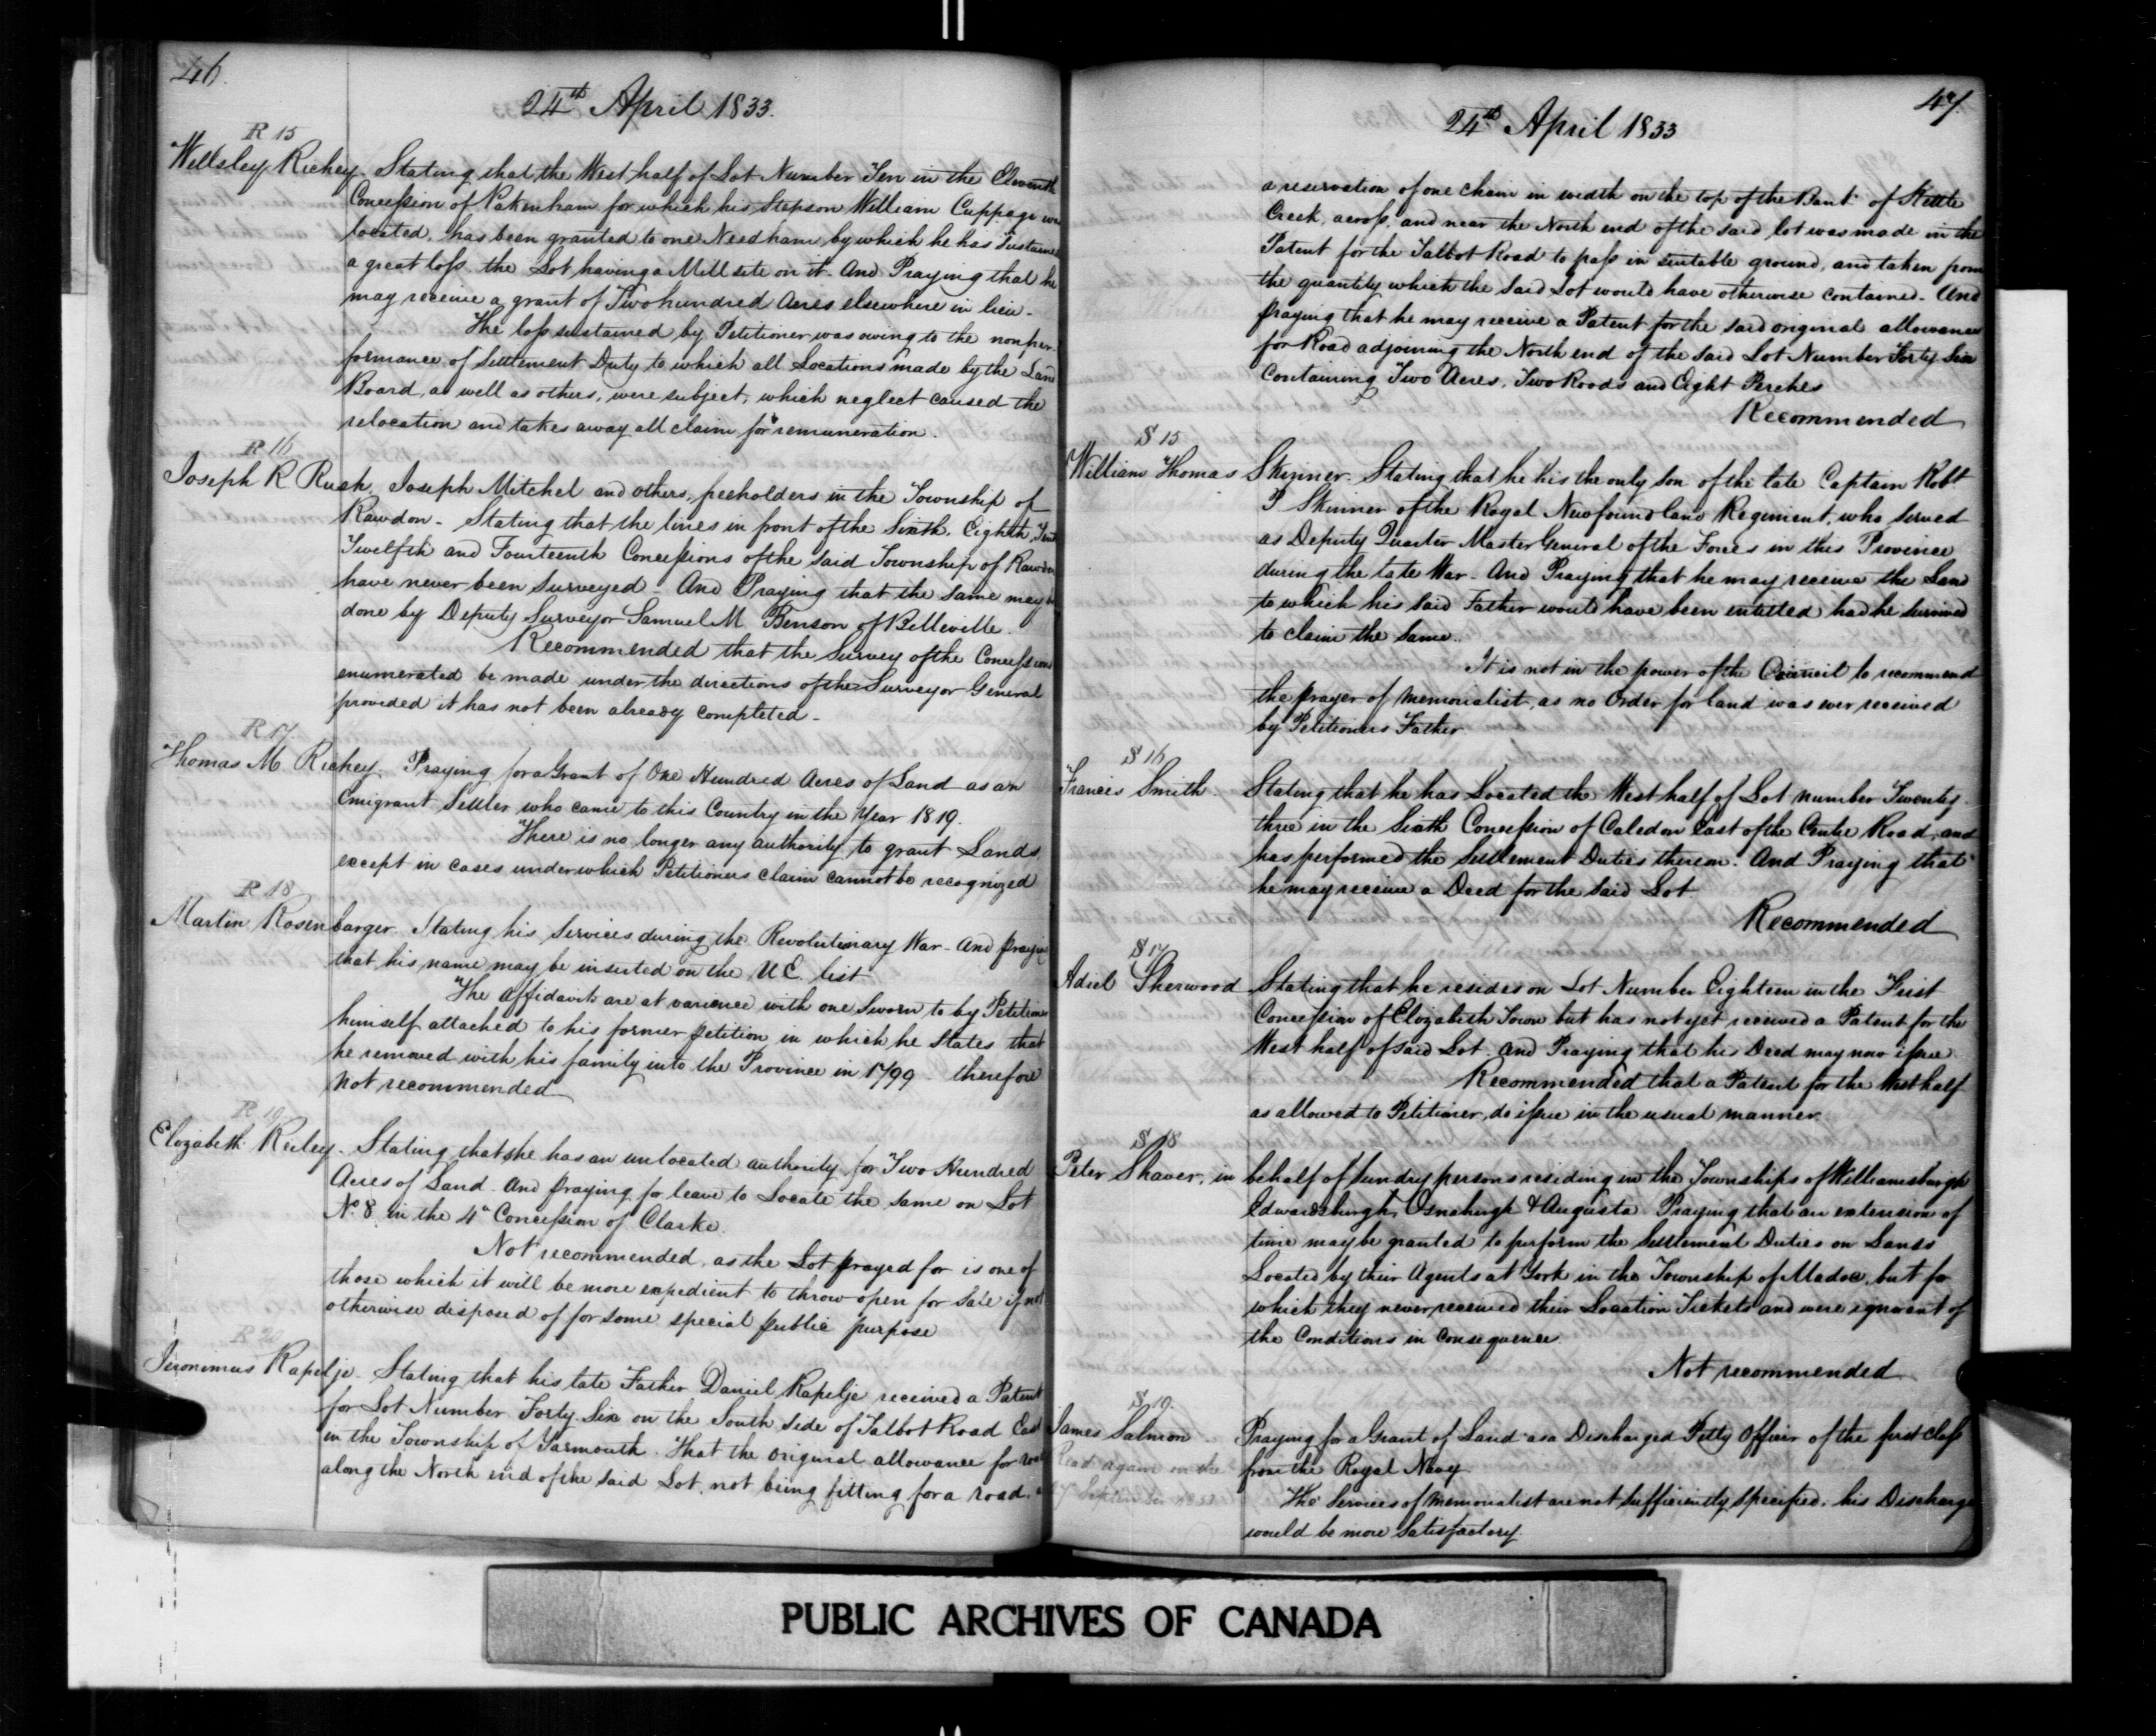 46.
24th April 1833.
R 15
Wellsley Richey. Stating that the West half of Lot Number Ten in the Eleventh
Concession of Pakenham for which his Stepson William Cuppage was
located, has been granted to one Needham, by which he has Sustained
a great loss the Lot having a Mill site on it. And Praying that he
may receive a grant of Two hundred Acres elsewhere in lieu.
The loss sustained by Petitioner was owing to the nonper-
formance of Settlement Duty to which all Locations made by the Land
Board, as well as others, were subject, which neglect caused the
relocation and takes away all claim for remuneration.
R 16
Joseph R Rush, Joseph Mitchel and others, freeholders in the Township of
Rawdon - Stating that the lines in front of the Sixth, Eighth, Tenth
Twelfth and Fourteenth Concessions of the said Township of Rawdon
have never been Surveyed - And Praying that the Same may be
done by Deputy Surveyor Samuel M Benson of Belleville.
Recommended that the Survey of the Concessions
enumerated be made under the directions of the Surveyor General
provided it has not been already completed -
R 17.
Thomas M. Richey. Praying for a Grant of One Hundred Acres of Land as an
Emigrant Settler who came to this Country in the Year 1819.
There is no longer any authority to grant Lands
except in cases under which Petitioners claim cannot be recognized
R 18
Martin Rosenbarger. Stating his Services during the Revolutinary War - And praying
that his name may be inserted on the U E. list
The Affidavits are at varience with one Sworn to by Petitioner
himself attached to his former petition in which he States that
he removed with his family into the Province in 1799 - therefore
Not recommended
R 19
Elizabeth Ruley. Stating that she has an unlocated authority for Two Hundred
Acres of Land. And praying for leave to Locate the same on Lot
No. 8 in the 4th Concession of Clarke.
Not recommended, as the Lot prayed for is one of
those which it will be more expedient to throw open for Sale if not
otherwise disposed of for some special public purpose
R 20
Jeronimus Rapelje. Stating that his late Father Daniel Rapelje received a Patent
for Lot Number Forty Six on the South Side of Talbot Road East
in the Township of Yarmouth. That the original allowance for road
along the North end of the said Lot, not being fitting for a road, a
47.
24th April 1833
a reservation of one chain in width on the top of the Bank of Kettle
Creek, across, and near the North end of the said lot was made in the
Patent for the Talbot Road to pass in suitable ground, and taken from
the quantity which the said Lot would have otherwise contained. And
praying that he may receive a Patent for the said original allowance
for Road adjoining the North end of the said Lot Number Forty Six
Containing Two Acres, Two Roods and Eight Perches
Recommended
S 15
William Thomas Skinner. Stating that he his the only Son of the late Captain Robt
P Skinner of the Royal Newfoundland Regiment, who served
as Deputy Quarter Master General of the Forces in this Province
during the late War - And Praying that he may receive the Land
to which his said Father would have been entitled had he survived
to claim the Same.
It is not in the power of the Council to recommend
the prayer of memorialist, as no Order for land was ever received
by Petitioners Father
S 16
Francis Smith Stating that he has Located the West half of Lot number Twenty
three in the Sixth Concession of Caledon East of the Centre Road, and
has performed the Settlement Duties thereon. And Praying that
he may receive a Deed for the said Lot.
Recommended
S 17
Adiel Sherwood Stating that he resides on Lot Number Eighteen in the First
Concession of Elizabeth Town but has not yet received a Patent for the
West half of said Lot. And Praying that his Deed may now issue.
Recommended that a Patent for the West half
as allowed to Petitioner, do issue in the usual manner.
S 18
Peter Shaver, in behalf of Sundry persons residing in the Townships of Williamsburgh
Edwardsburgh, Osnaburgh & Augusta Praying that an extension of
time may be granted to perform the Settlement Duties on Lands
Located by their Agents at York in the Township of Madoc, but for
which they never received their Location Tickets and were ignorant of
the Conditions in Consequence.
Not recommended
S 19.
James Salmon Praying for a Grant of Land as a Discharged Petty Officer of the first class
Read again on the from the Royal Navy
September The Services of Memorialist are not Sufficiently Specified, his Discharge
would be more Satisfactory.
PUBLIC ARCHIVES OF CANADA